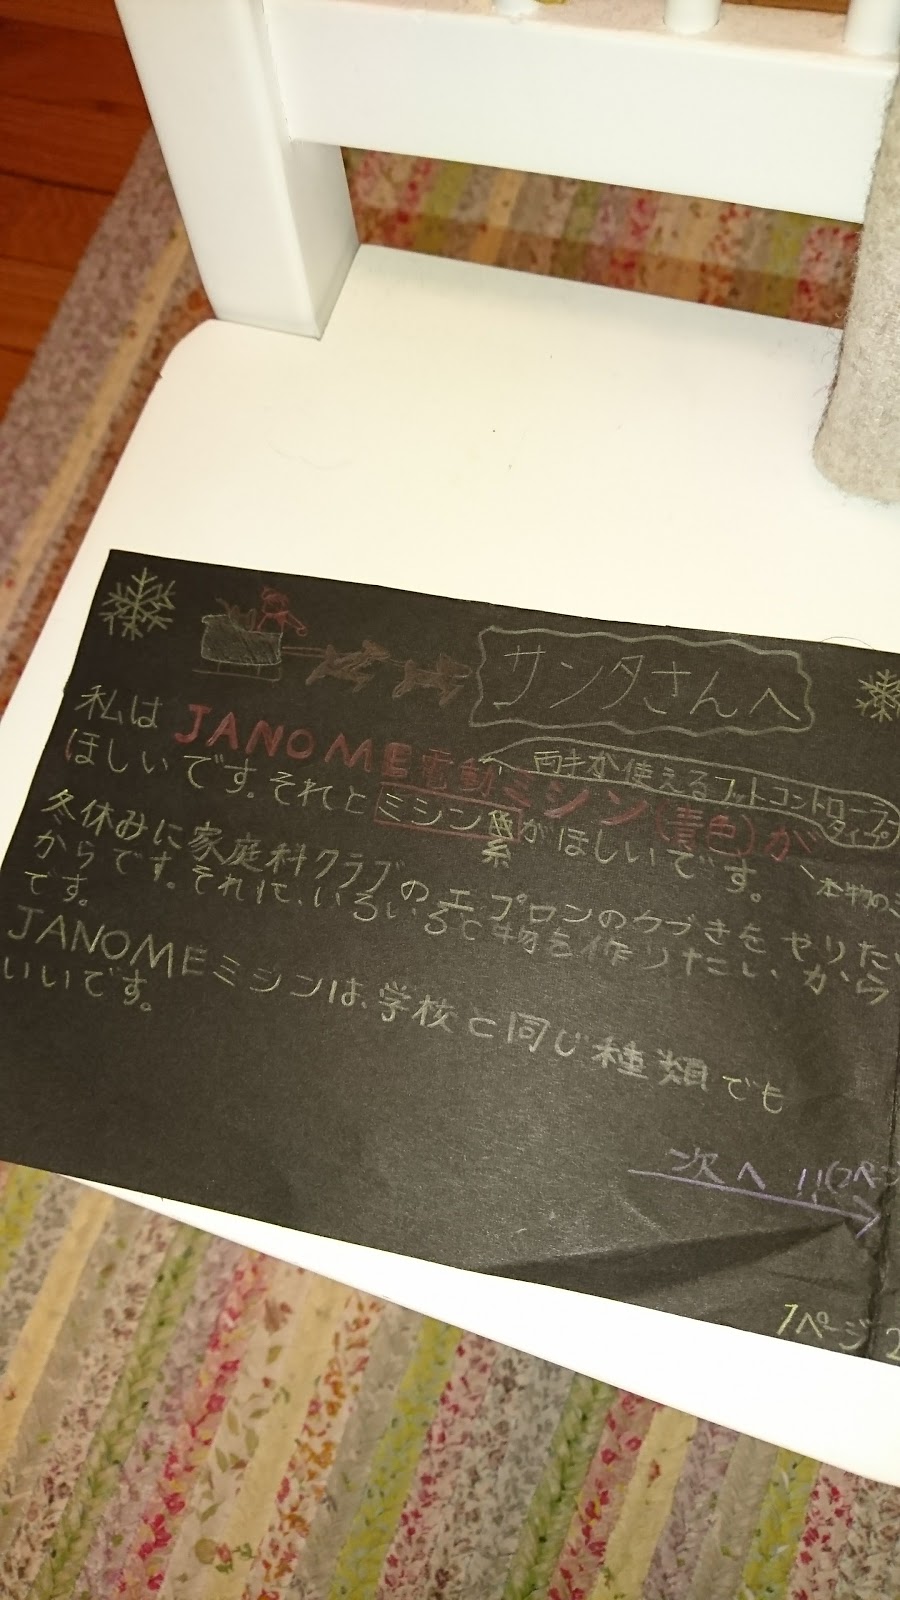 サンタさんへ
両手が使えるフットコントローラー
タイプ
私はJANOME電動ミシン(青色)が
ほしいです。それとミシン糸がほしいです。
本物の
冬休みに家庭科クラブのエプロンのつづきをやりたい
からです。それに、いろいろな物を作りたいから
です。
JANOMEミシンは、学校と同じ種類でも
いいです。
次へ!!(2ページ
1ページ 2